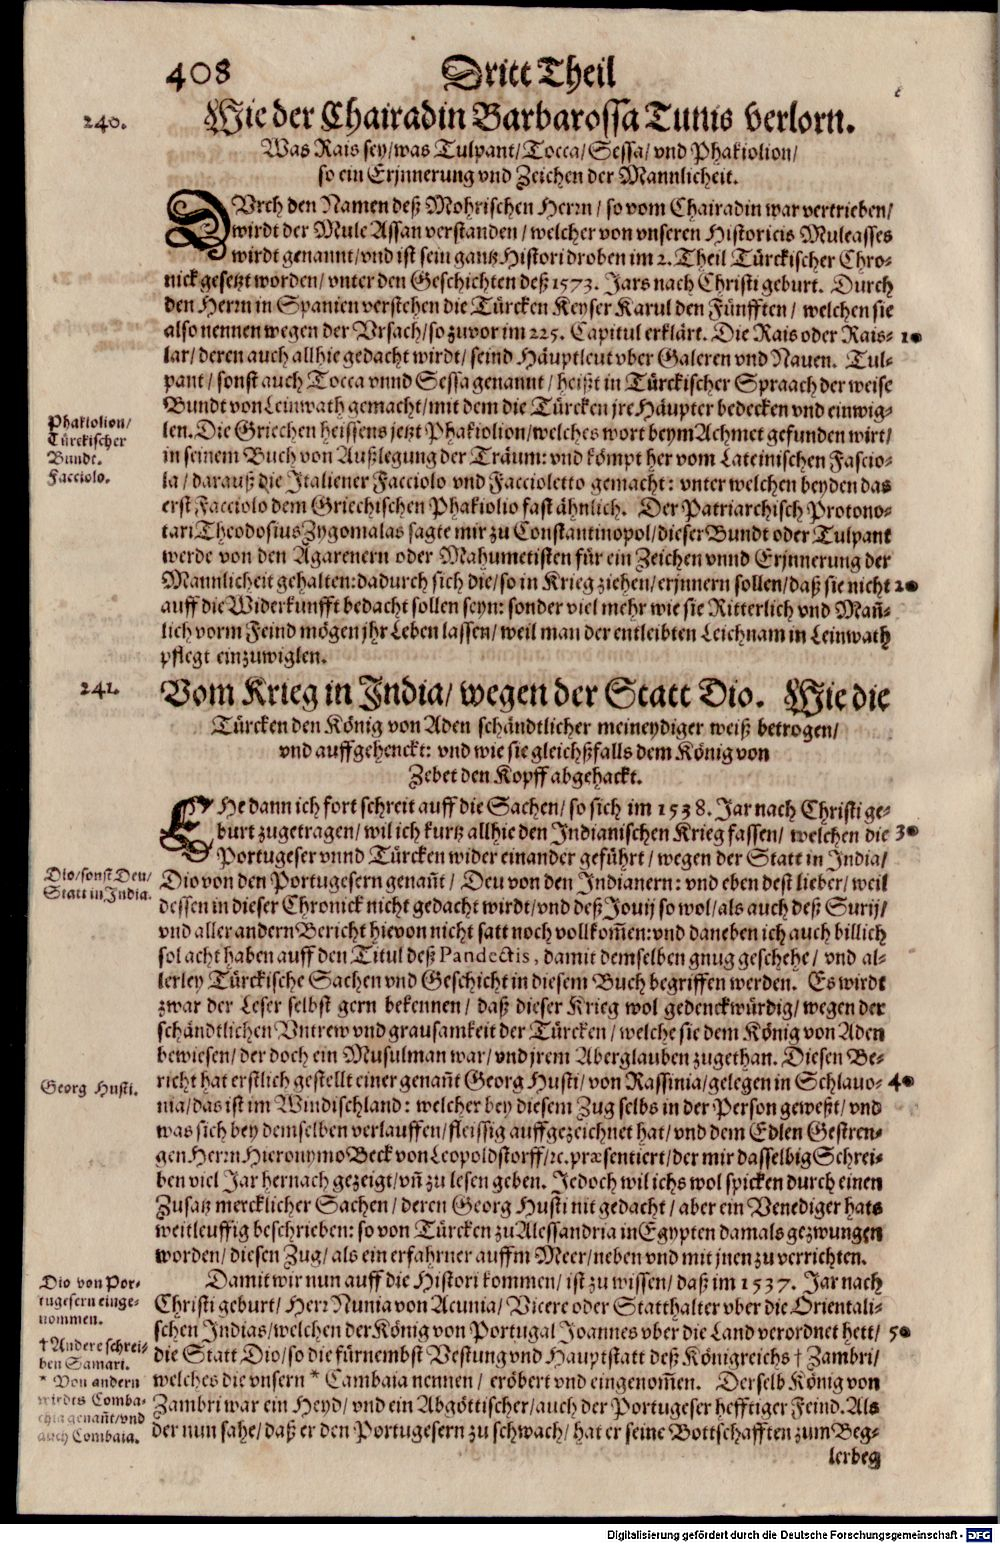 408
Dritt Theil
240.
Wie der Chairadin Barbarossa Tunis verlorn.
Was Rais sey/was Tulpant/Tocca/Sessa/vnd Phakiolion/
so ein Erjnnerung vnd Zeichen der Mannlicheit.
DVrch den Namen deß Mohrischen Herrn/ so vom Chairadin war vertrieben/
wirdt der Mule Assan verstanden/ welcher von vnseren Historicis Muleasses
wirdt genannt/vnd ist sein gantz Histori droben im 2. Theil Türckischer Chro-
nick gesetzt worden/ vnter den Geschichten deß 1573. Jars nach Christi geburt. Durch
den Herrn in Spanien verstehen die Türcken Keyser Karul den Fünfften/ welchen sie
also nennen wegen der Vrsach/so zuvor im 225. Capitul erklärt. Die Rais oder Rais-
10
lar/ deren auch allhie gedacht wirdt/ seind Häuptleut vber Galeren vnd Nauen. Tul-
pant/ sonst auch Tocca vnnd Sessa genannt/ heißt in Türckischer Spraach der weise
Bundt von Leinwath gemacht/mit dem die Türcken jre Häupter bedecken vnd einwig-
len. Die Griechen heissens jetzt Phakiolion/welches wort beym Achmet gefunden wirt/
in seinem Buch von Außlegung der Träum: vnd kömpt her vom Lateinischen Fascio-
la/ darauß die Italiener Facciolo vnd Faccioletto gemacht: vnter welchen beyden das
erst Facciolo dem Griechischen Phakiolio fast ähnlich. Der Patriarchisch Protono-
tari Theodosius Zygomalas sagte mir zu Constantinopol/dieser Bundt oder Tulpant
werde von den Agarenern oder Mahumetisten für ein Zeichen vnnd Erjnnerung der
Mannlicheit gehalten: dadurch sich die/so in Krieg ziehen/erjnnern sollen/daß sie nicht
20
auff die Widerkunfft bedacht sollen seyn: sonder viel mehr wie sie Ritterlich vnd Mañ-
lich vorm Feind mögen jhr Leben lassen/ weil man der entleibten Leichnam in Leinwath
pflegt einzuwiglen.
Phakiolion/
Türckischer
Bundt.
Facciolo.
241.
Vom Krieg in India/ wegen der Statt Dio. Wie die
Türcken den König von Aden schändtlicher meineydiger weiß betrogen/
vnd auffgehenckt: vnd wie sie gleichßfalls dem König von
Zebet den Kopff abgehackt.
EHe dann ich fort schreit auff die Sachen/ so sich im 1538. Jar nach Christi ge-
burt zugetragen/ wil ich kurtz allhie den Indianischen Krieg fassen/ welchen die
30
Portugeser vnnd Türcken wider einander geführt/ wegen der Statt in India/
Dio von den Portugesern genañt/ Deu von den Indianern: vnd eben dest lieber/ weil
dessen in dieser Chronick nicht gedacht wirdt/vnd deß Jouij so wol/als auch deß Surij/
vnd aller andern Bericht hievon nicht satt noch vollkom̃en: vnd daneben ich auch billich
sol acht haben auff den Titul deß Pandectis, damit demselben gnug geschehe/ vnd al-
lerley Türckische Sachen vnd Geschicht in diesem Buch begriffen werden. Es wirdt
zwar der Leser selbst gern bekennen/ daß dieser Krieg wol gedenckwürdig/ wegen der
schändtlichen Vntrew vnd grausamkeit der Türcken/ welche sie dem König von Aden
bewiesen/ der doch ein Musulman war/ vnd jrem Aberglauben zugethan. Diesen Be-
richt hat erstlich gestellt einer genañt Georg Husti/ von Rassinia/gelegen in Schlavo-
40
nia/das ist im Windischland: welcher bey diesem Zug selbs in der Person geweßt/ vnd
was sich bey demselben verlauffen/fleissig auffgezeichnet hat/ vnd dem Edlen Gestren-
gen Herrn Hieronymo Beck von Leopoldstorff/ꝛc. præsentiert/der mir dasselbig Schrei-
ben viel Jar hernach gezeigt/vñ zu lesen geben. Jedoch wil ichs wol spicken durch einen
Zusatz mercklicher Sachen/ deren Georg Husti nit gedacht/ aber ein Venediger hats
weitleuffig beschrieben: so von Türcken zu Alessandria in Egypten damals gezwungen
worden/ diesen Zug/ als ein erfahrner auffm Meer/neben vnd mit jnen zu verrichten.
Dio/sonst Deu/
Statt in India.
Georg Husti.
Damit wir nun auff die Histori kommen/ ist zu wissen/ daß im 1537. Jar nach
Christi geburt/ Herr Nunia von Acunia/ Vicere oder Statthalter vber die Orientali-
schen Indias/welchen der König von Portugal Joannes vber die Land verordnet hett/
50
die Statt Dio/so die fürnembst Vestung vnd Hauptstatt deß Königreichs † Zambri/
welches die vnsern * Cambaia nennen/ eröbert vnd eingenom̃en. Derselb König von
Zambri war ein Heyd/ vnd ein Abgöttischer/auch der Portugeser hefftiger Feind. Als
der nun sahe/ daß er den Portugesern zu schwach/ hat er seine Bottschafften zum Beg-
lerbeg
Dio von Por-
tugesern einge-
nommen.
† Andere schrei-
ben Samari.
* Von andern
wirdts Comba-
chia genañt/vnd
auch Combaia.
Digitalisierung gefördert durch die Deutsche Forschungsgemeinschaft - DFG